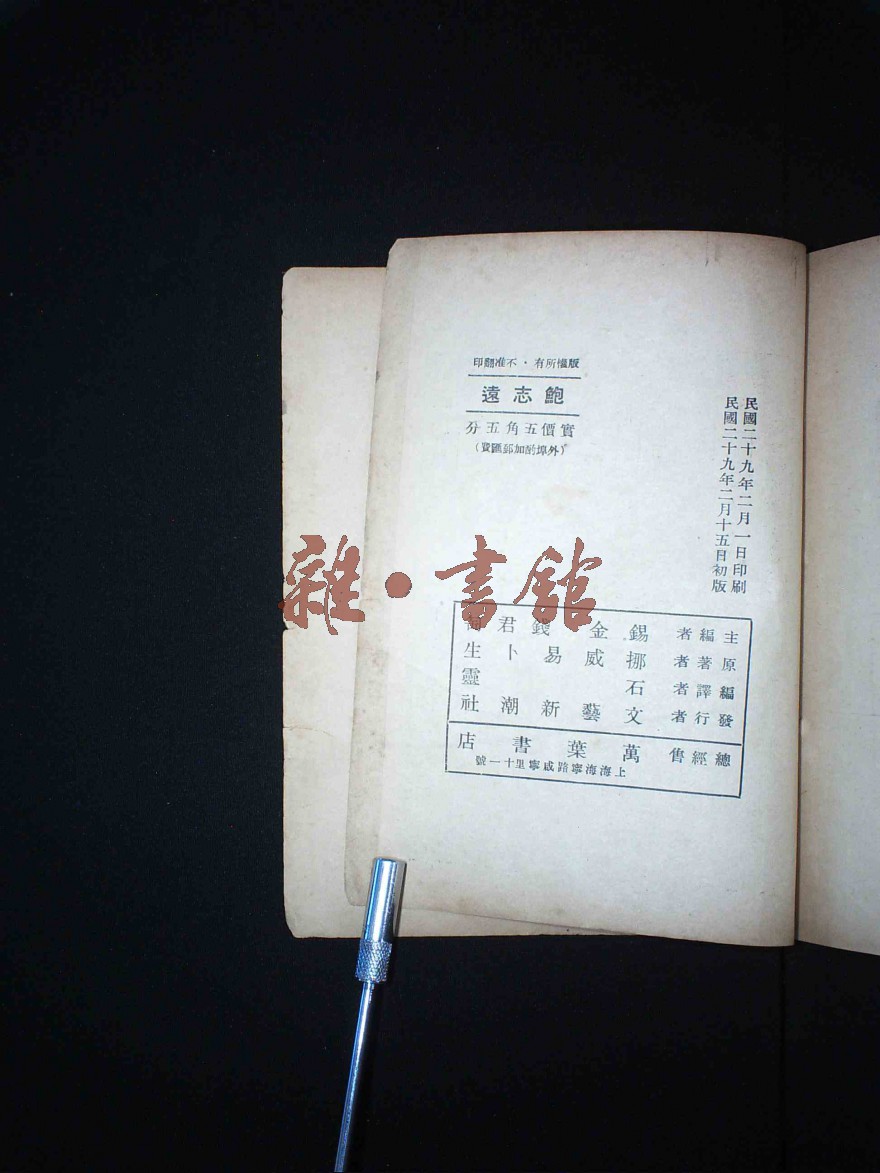 版權所有·不准翻印
鮑志遠
實價五角五分
（外埠酌加郵匯費）
民國二十九年二月一日印刷
民國二十九年二月十五日初版
主編者 錫金 錢君匋
原著者 挪威易卜生
編譯者 石靈
發行者 文藝新潮社
總經售 萬葉書店
上海海寧路咸寧里十一號
雜·書館